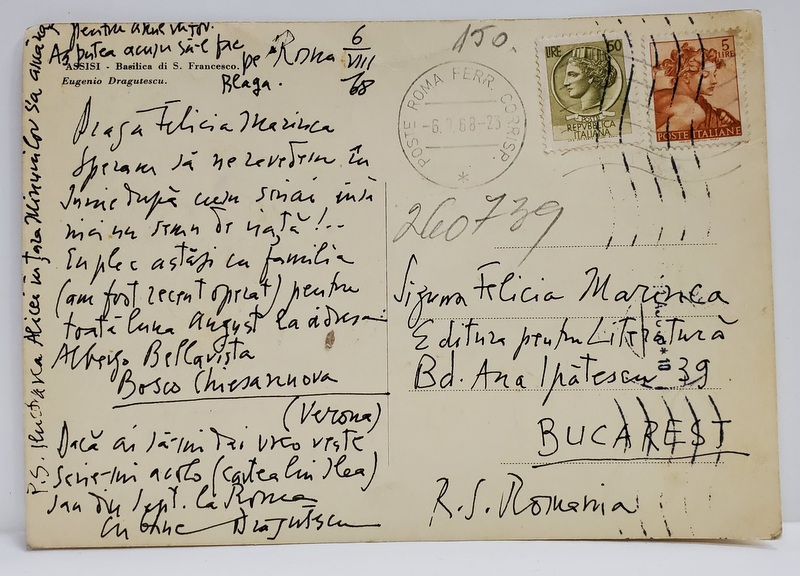 ASSISI - Basilica di S. Francesco.
Eugenio Dragutescu.
Roma 6
VIII
68
Dragă Felicia Marinca
Speram să ne revedem în
Iunie după cum scriai însă
niciun semn de viață!..
Eu plec astăzi cu familia
(am fost recent operat) pentru
toată luna August la adresa:
Albergo Bellavista
Bosco Chiesanuova
(Verona)
Dacă ai să-mi dai vreo veste
scrie-mi acolo (cartea lui Ilea)
sau din Sept. la Roma
cu bine Dragutescu
P.S. Ilustrarea Alicei în Țara Minunilor s'a amânat
pentru anul viitor.
Aș putea acum să-l fac
pe
Blaga.
150.
POSTE ROMA FERR. CORRISP.
-6. 68-23
LIRE 50
POSTE
REPVBBLICA
ITALIANA
5
LIRE
POSTE ITALIANE
260739
Felicia Marinca
Editura pentru Literatură
Bd. Ana Ipătescu 39
BUCAREST
R.S. Romania